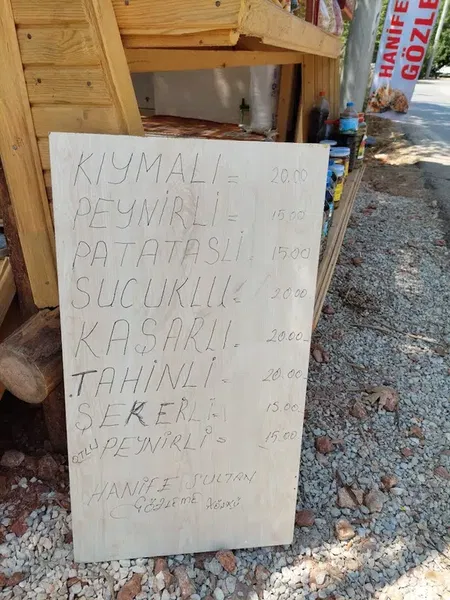 HANİFE
GÖZLE
KIYMALI = 20.00
PEYNİRLİ = 15.00
PATATASLI. 15.00
SUCUKLU = 20.00
KAŞARLI = 20.00
TAHİNLİ = 20.00
ŞEKERLİ = 15.00
OTLU PEYNİRLİ = 15.00
HANİFE SULTAN
GÖZLEME KÖŞKÜ